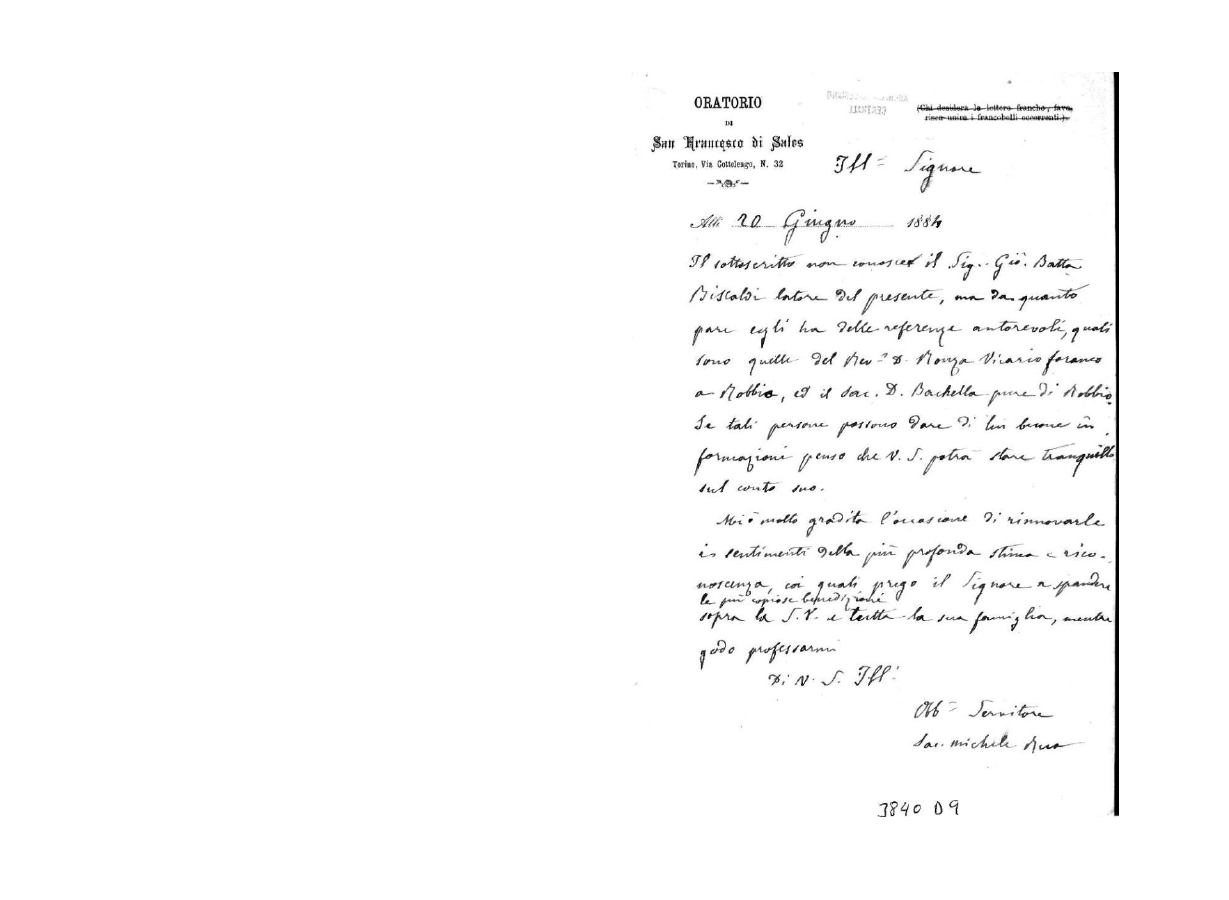 ORATORIO
DI
San Francesco di Sales
Torino, Via Cottolengo, N. 32
(Chi desidera le lettere franche, favo-
risca unire i francobolli occorrenti.)
Ill.mo Signore
Alli 20 Giugno 1884
Il sottoscritto non conosce il Sig. Gio. Batta
Biscaldi latore del presente, ma da quanto
pare egli ha delle referenze autorevoli, quali
sono quelle del Rev.do D. Ronza Vicario foraneo
a Robbio, ed il Sac. D. Bachella pure di Robbio.
Se tali persone possono dare di lui buone in
formazioni penso che V. S. potrà stare tranquillo
sul conto suo.
Mi è molto gradita l'occasione di rinnovarle
i sentimenti della più profonda stima e rico-
noscenza, coi quali prego il Signore a spandere
le più copiose benedizioni
sopra la S. V. e tutta la sua famiglia, mentre
godo professarmi
Di V. S. Ill.
Obb.mo Servitore
Sac. Michele Rua
3840 D9